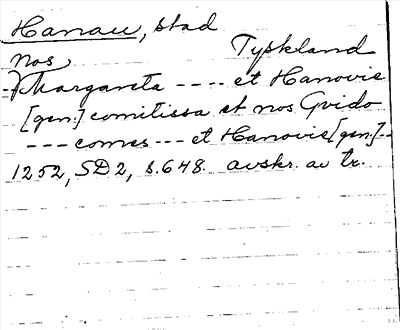 Hanau, stad
Tyskland
nos
Margareta ---- et Hanovie
[gen.] comitissa et nos Gvido
--- comes --- et Hanovie [gen.] --
1252, SD 2, s. 648. avskr. av tr.